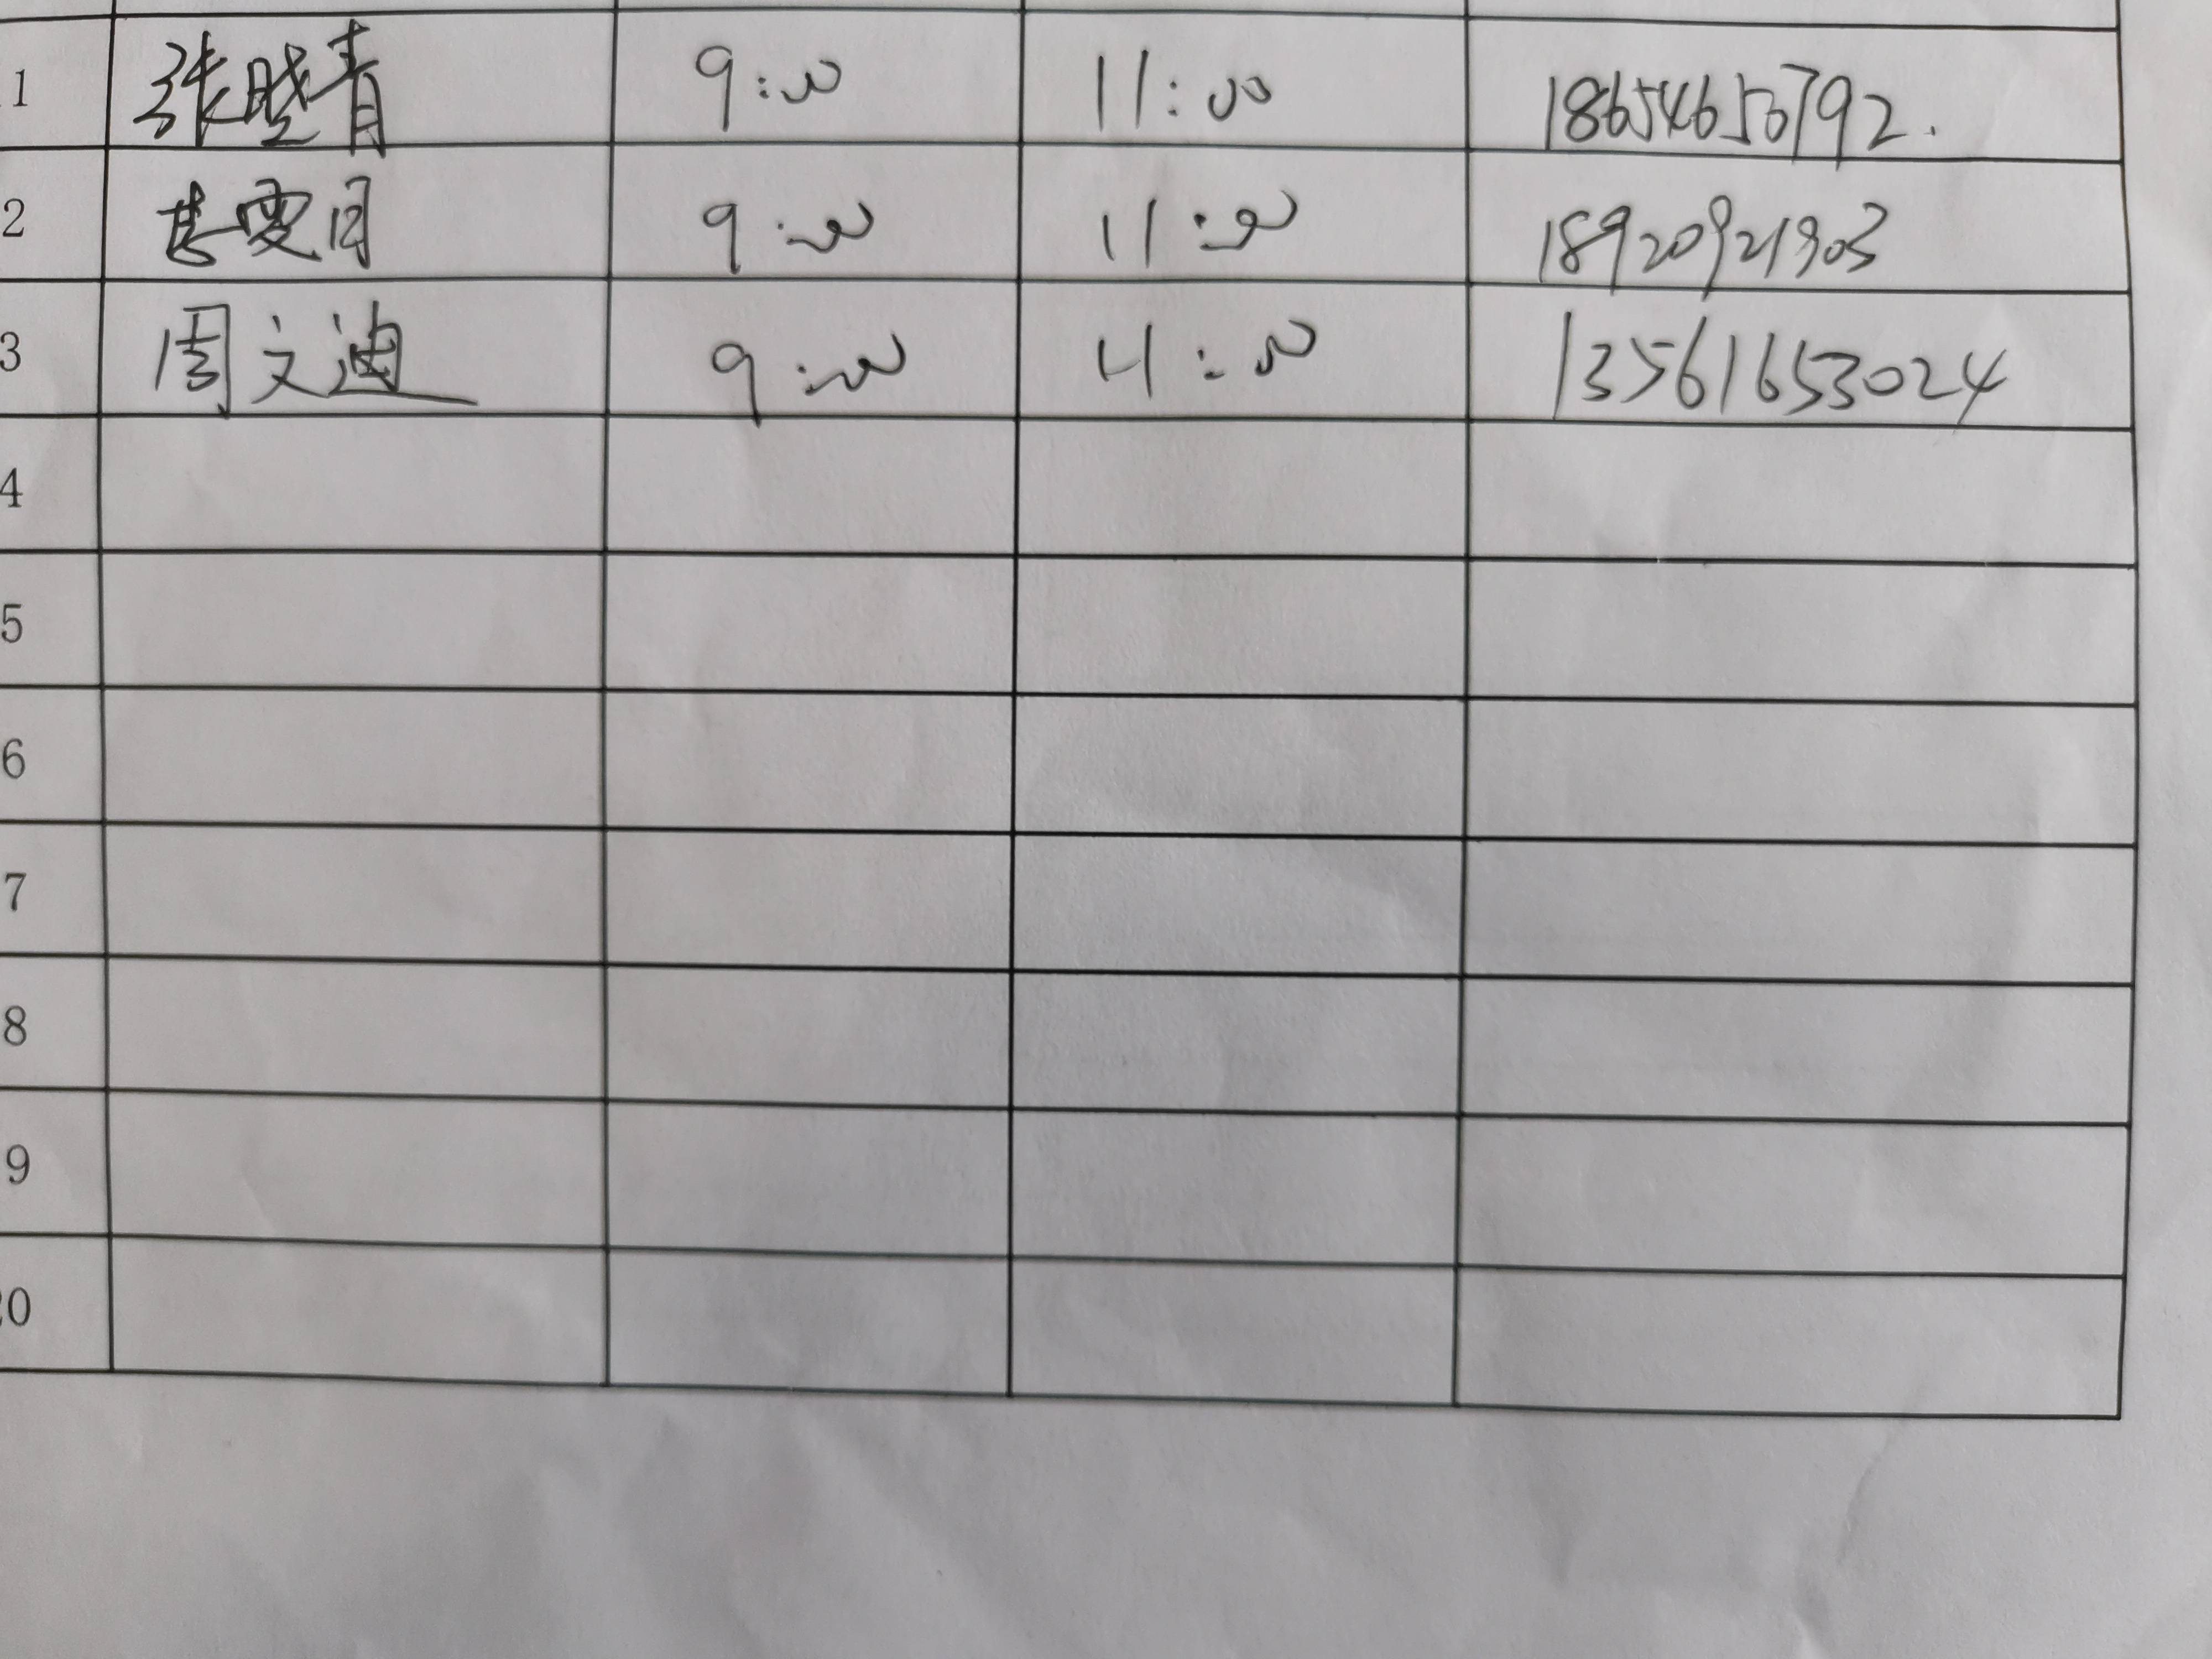 1 张晓青 9:00 11:00 18654653792.
2 9:00 11:00 18920921903
3 周文迪 9:00 11:00 13561653024
4
5
6
7
8
9
20